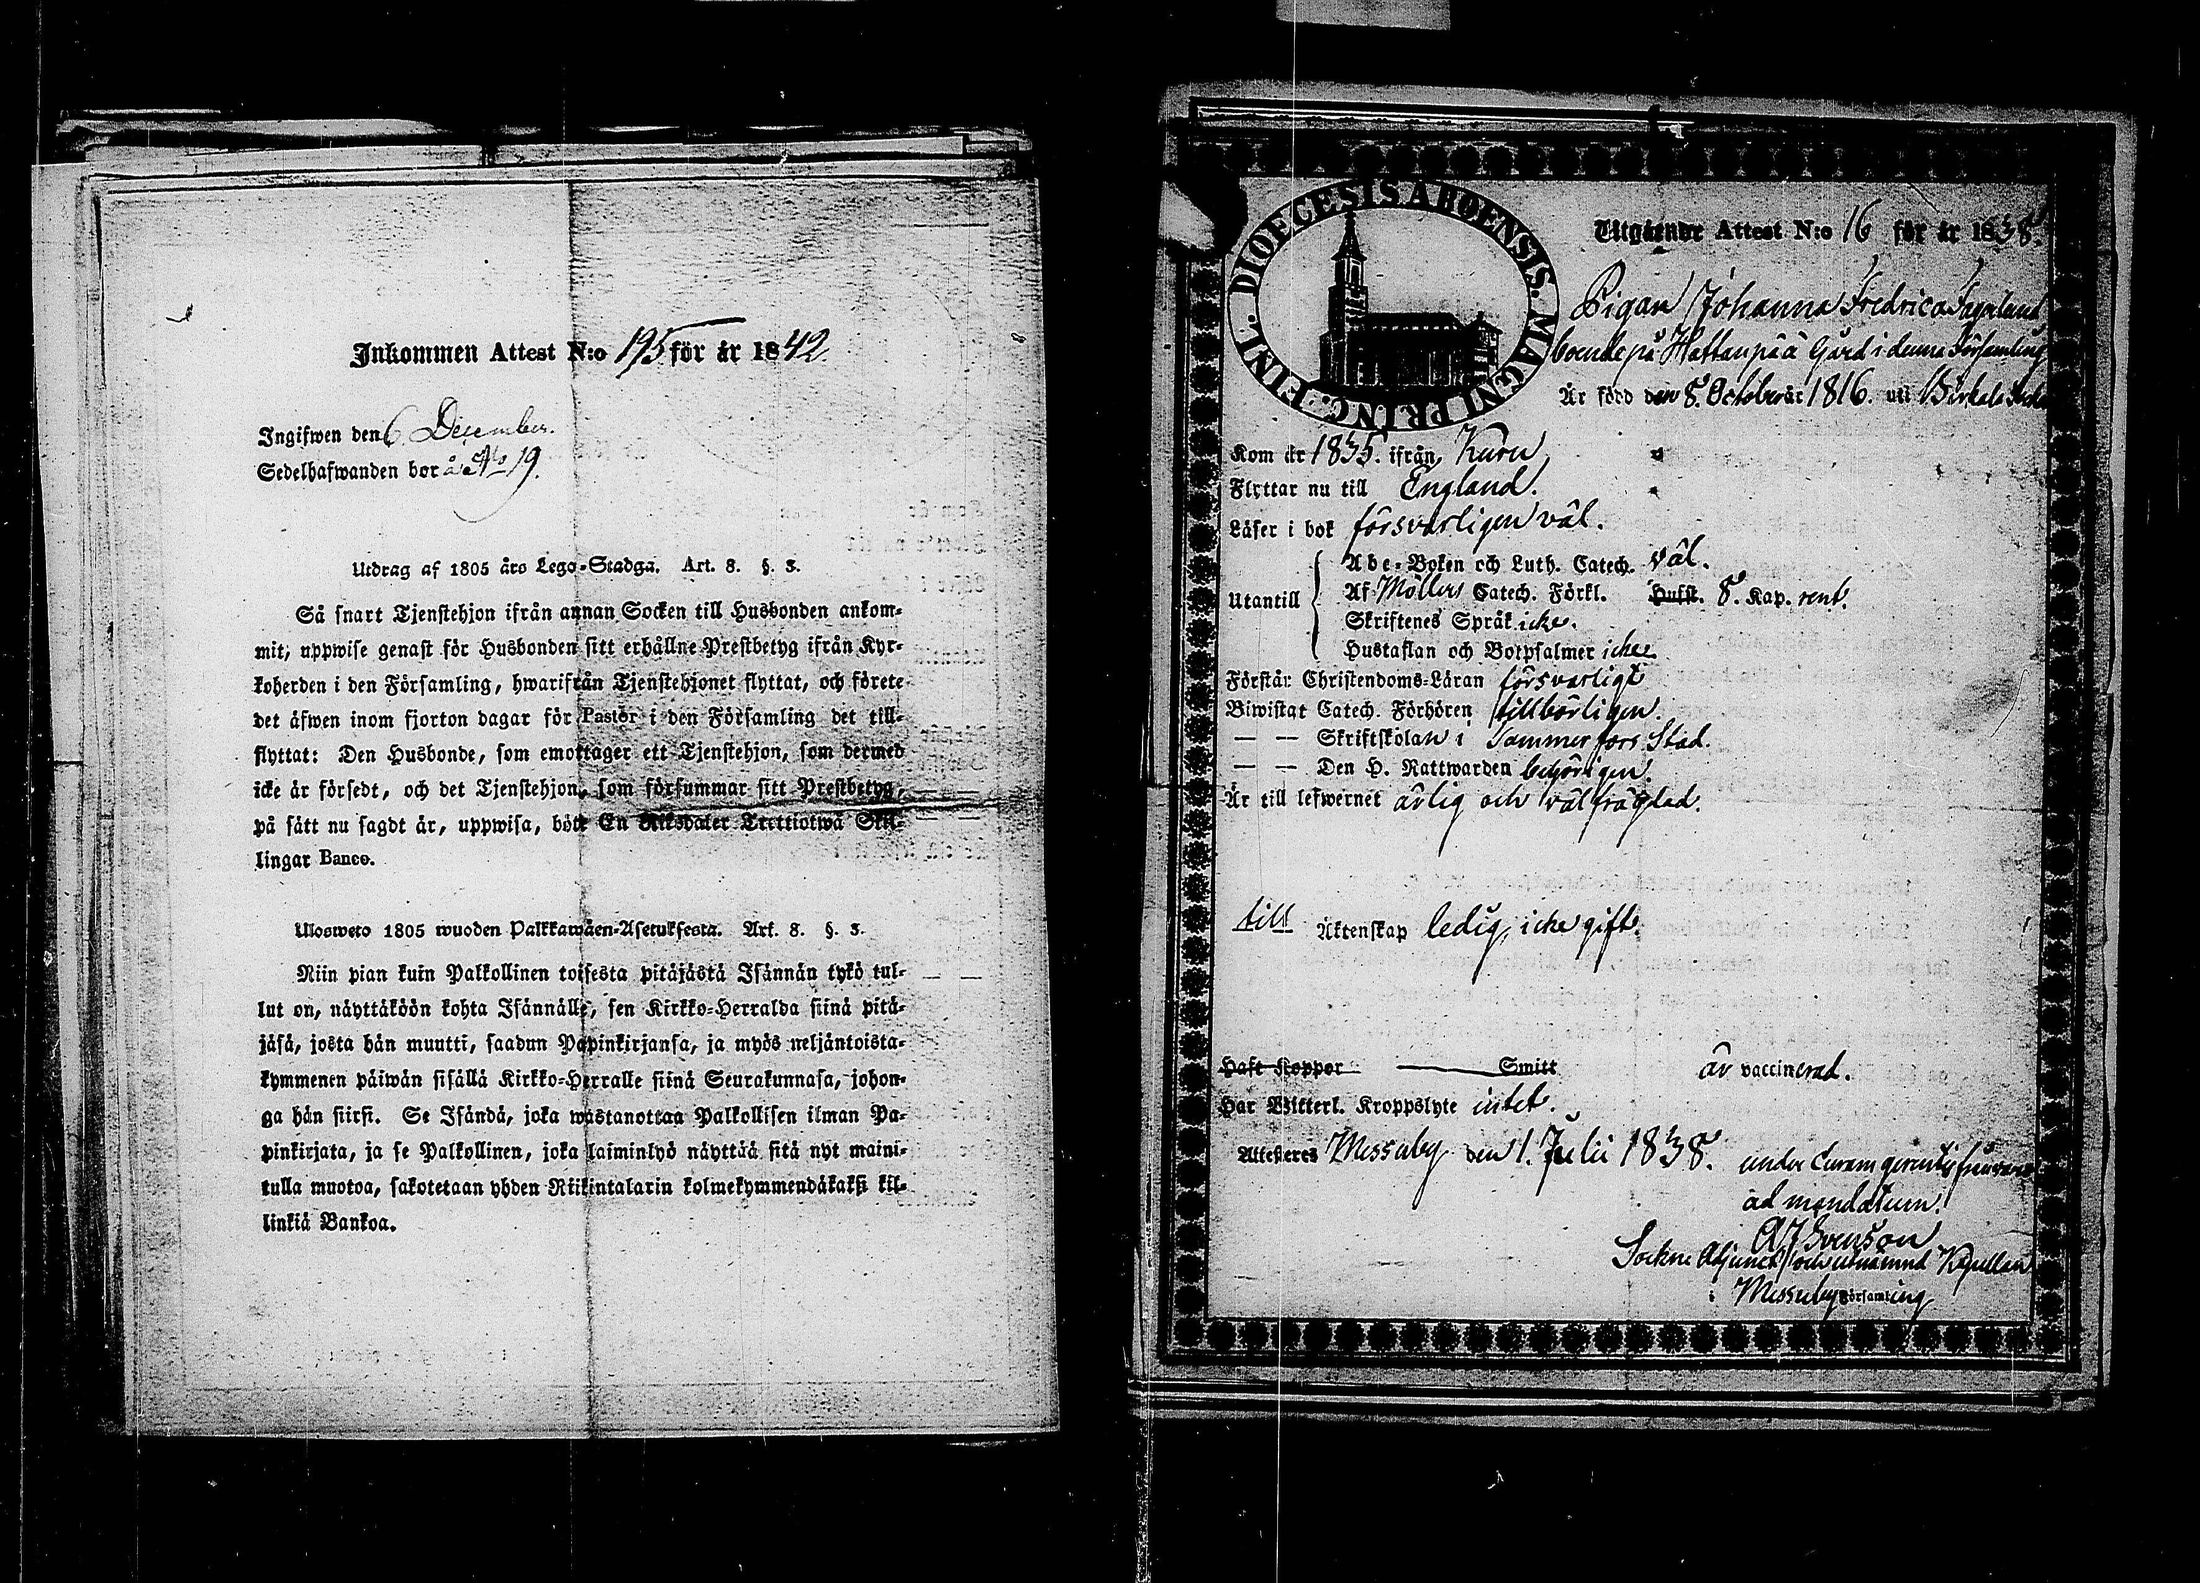 Inkommen Attest N:o 195 för år 1842
Ingifwen den 6 December.
Sedelhafwanden bor å No 19.
Utdrag af 1805 års Lego-Stadga. Art. 8. §. 3.
Så snart Tjenstehjon ifrån annan Socken till Husbonden ankom-
mit, uppwise genast för Husbonden sitt erhållne Prestbetyg ifrån Kyr-
koherden i den Församling, hwarifrån Tjenstehjonet flyttat, och förete
det äfwen inom fjorton dagar för Pastor i den Församling det till-
flyttat: Den Husbonde, som emottager ett Tjenstehjon, som dermed
icke är försedt, och det Tjenstehjon, som försummar sitt Prestbetyg,
på sätt nu sagdt är, uppwisa, böte En Riksdaler Trettiotwå Skil-
lingar Banco.
Ulosweto 1805 wuoden Palkkawäen-Asetuksesta. Art. 8. §. 3.
Niin pian kuin Palkollinen toisesta pitäjästä Isännän tykö tul-
lut on, näyttäköön kohta Isännälle, sen Kirkko-Herralda siinä pitä-
jäsä, josta hän muutti, saadun Papinkirjansa, ja myös neljäntoista-
kymmenen päiwän sisällä Kirkko-Herralle siinä Seurakunnasa, johon-
ga hän siirsi. Se Isändä, joka wastanottaa Palkollisen ilman Pa-
pinkirjata, ja se Palkollinen, joka laiminlyö näyttää sitä nyt maini-
tulla muotoa, sakotetaan yhden Riikintalarin kolmekymmendäkaksi kil-
linkiä Bankoa.
DIOECESIS ABOENSIS. MAGNI PRINC. FINL.
Utgående Attest N:o 16 för år 1838.
Pigan Johanna Fredrica Fagerlund
boende på Hattanpää Gård i denna Församling
Är född den 8. October år 1816. uti Birkala Sockn
Kom år 1835. ifrån Kuru
Flyttar nu till England.
Läser i bok försvarligen väl.
Utantill
Abc-Boken och Luth. Catech. väl.
Af Möllers Catech. Förkl. Hufst. 8. Kap. rent.
Skriftenes Språk icke.
Hustaflan och Botpsalmer icke
Förstår Christendoms-Läran försvarligt
Biwistat Catech. Förhören tillbörligen.
— — Skriftskolan i Tammerfors Stad.
— — Den H. Nattwarden behörigen.
Är till lefwernet ärlig och välfrägdad.
till Äktenskap ledig, icke gift.
Haft Koppor Smitt är vaccinerad.
Har Witterl. Kroppslyte intet.
Attesteres Messuby den 1. Julii 1838. under Curam gerentis
ad mandatum.
A J Svenson
Sockne Adjunct och utnämnd Kapellan
i Messuby Församling